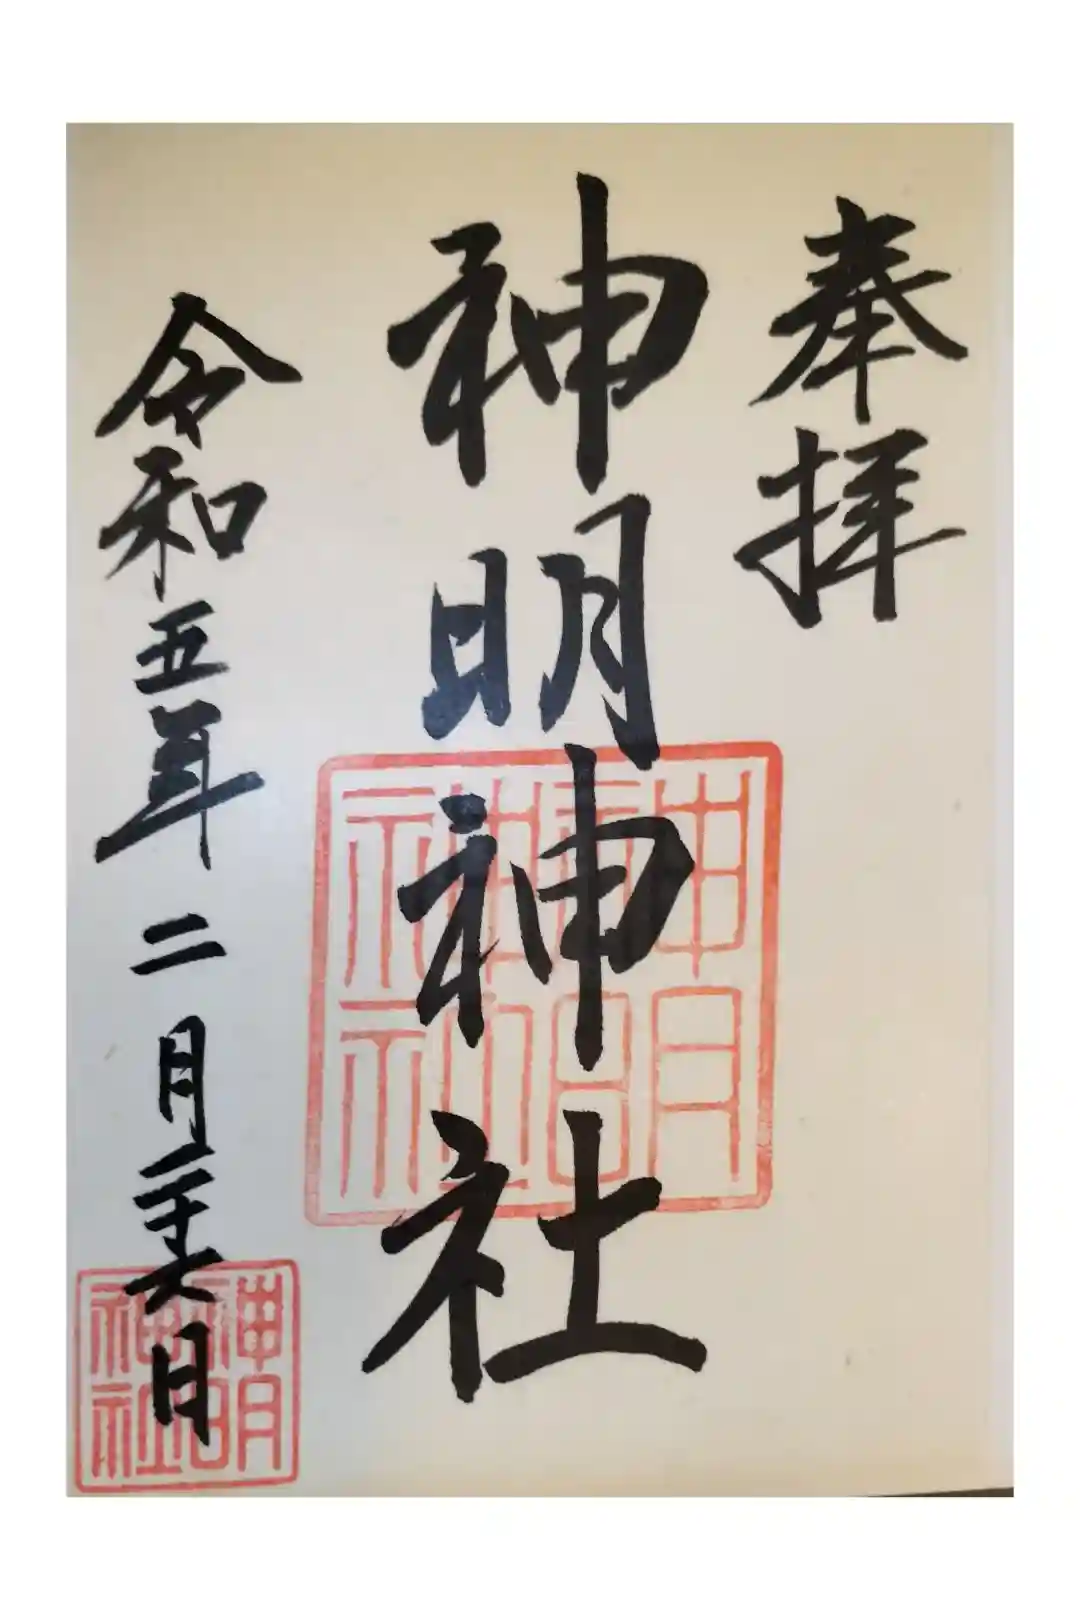 奉拝
神明神社
神明
神社
令和五年二月二十六日
神明
神社